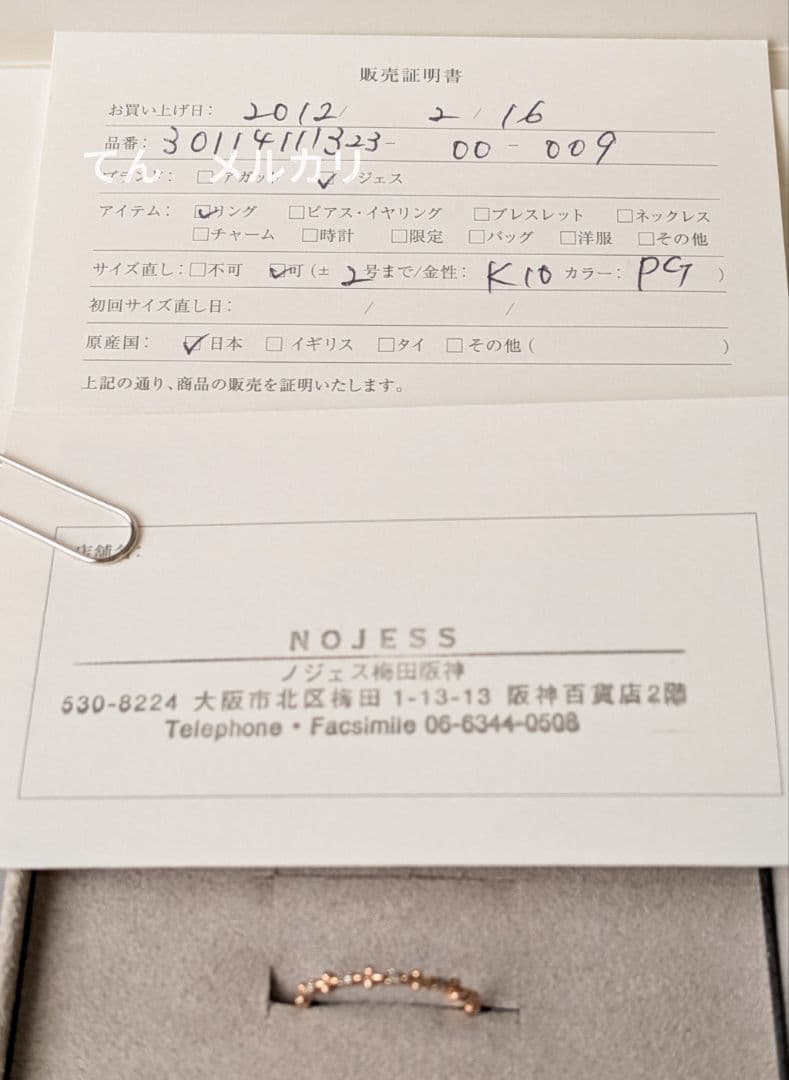 販売証明書
お買い上げ日: 2012/ 2 / 16
品番: 30114111323- 00 - 009
てん メルカリ
ブランド: □アガット ☑ジェス
アイテム: ☑リング □ピアス・イヤリング □ブレスレット □ネックレス
□チャーム □時計 □限定 □バッグ □洋服 □その他
サイズ直し: □不可 ☑可 (± 2号まで/金性: K10 カラー: PG )
初回サイズ直し日: / /
原産国: ☑日本 □イギリス □タイ □その他 ( )
上記の通り、商品の販売を証明いたします。
店舗名:
NOJESS
ノジェス梅田阪神
530-8224 大阪市北区梅田 1-13-13 阪神百貨店2階
Telephone・Facsimile 06-6344-0508